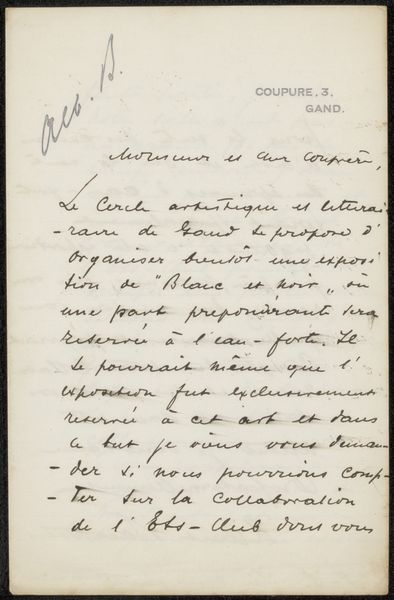 Alb. B.
COUPURE, 3,
GAND.
Monsieur et cher confrère,
Le Cercle artistique et litterai-
-raire de Gand se propose d'
organiser bientôt une exposi
tion de "Blanc et noir„ où
une part prépondérante sera
reservée à l'eau-forte. Il
se pourrait même que l'
exposition fut exclusivement
reservée à cet art et dans
ce but je viens vous deman-
-der si nous pourrions comp-
-ter sur la collaboration
de l'Ets-Club dont vous